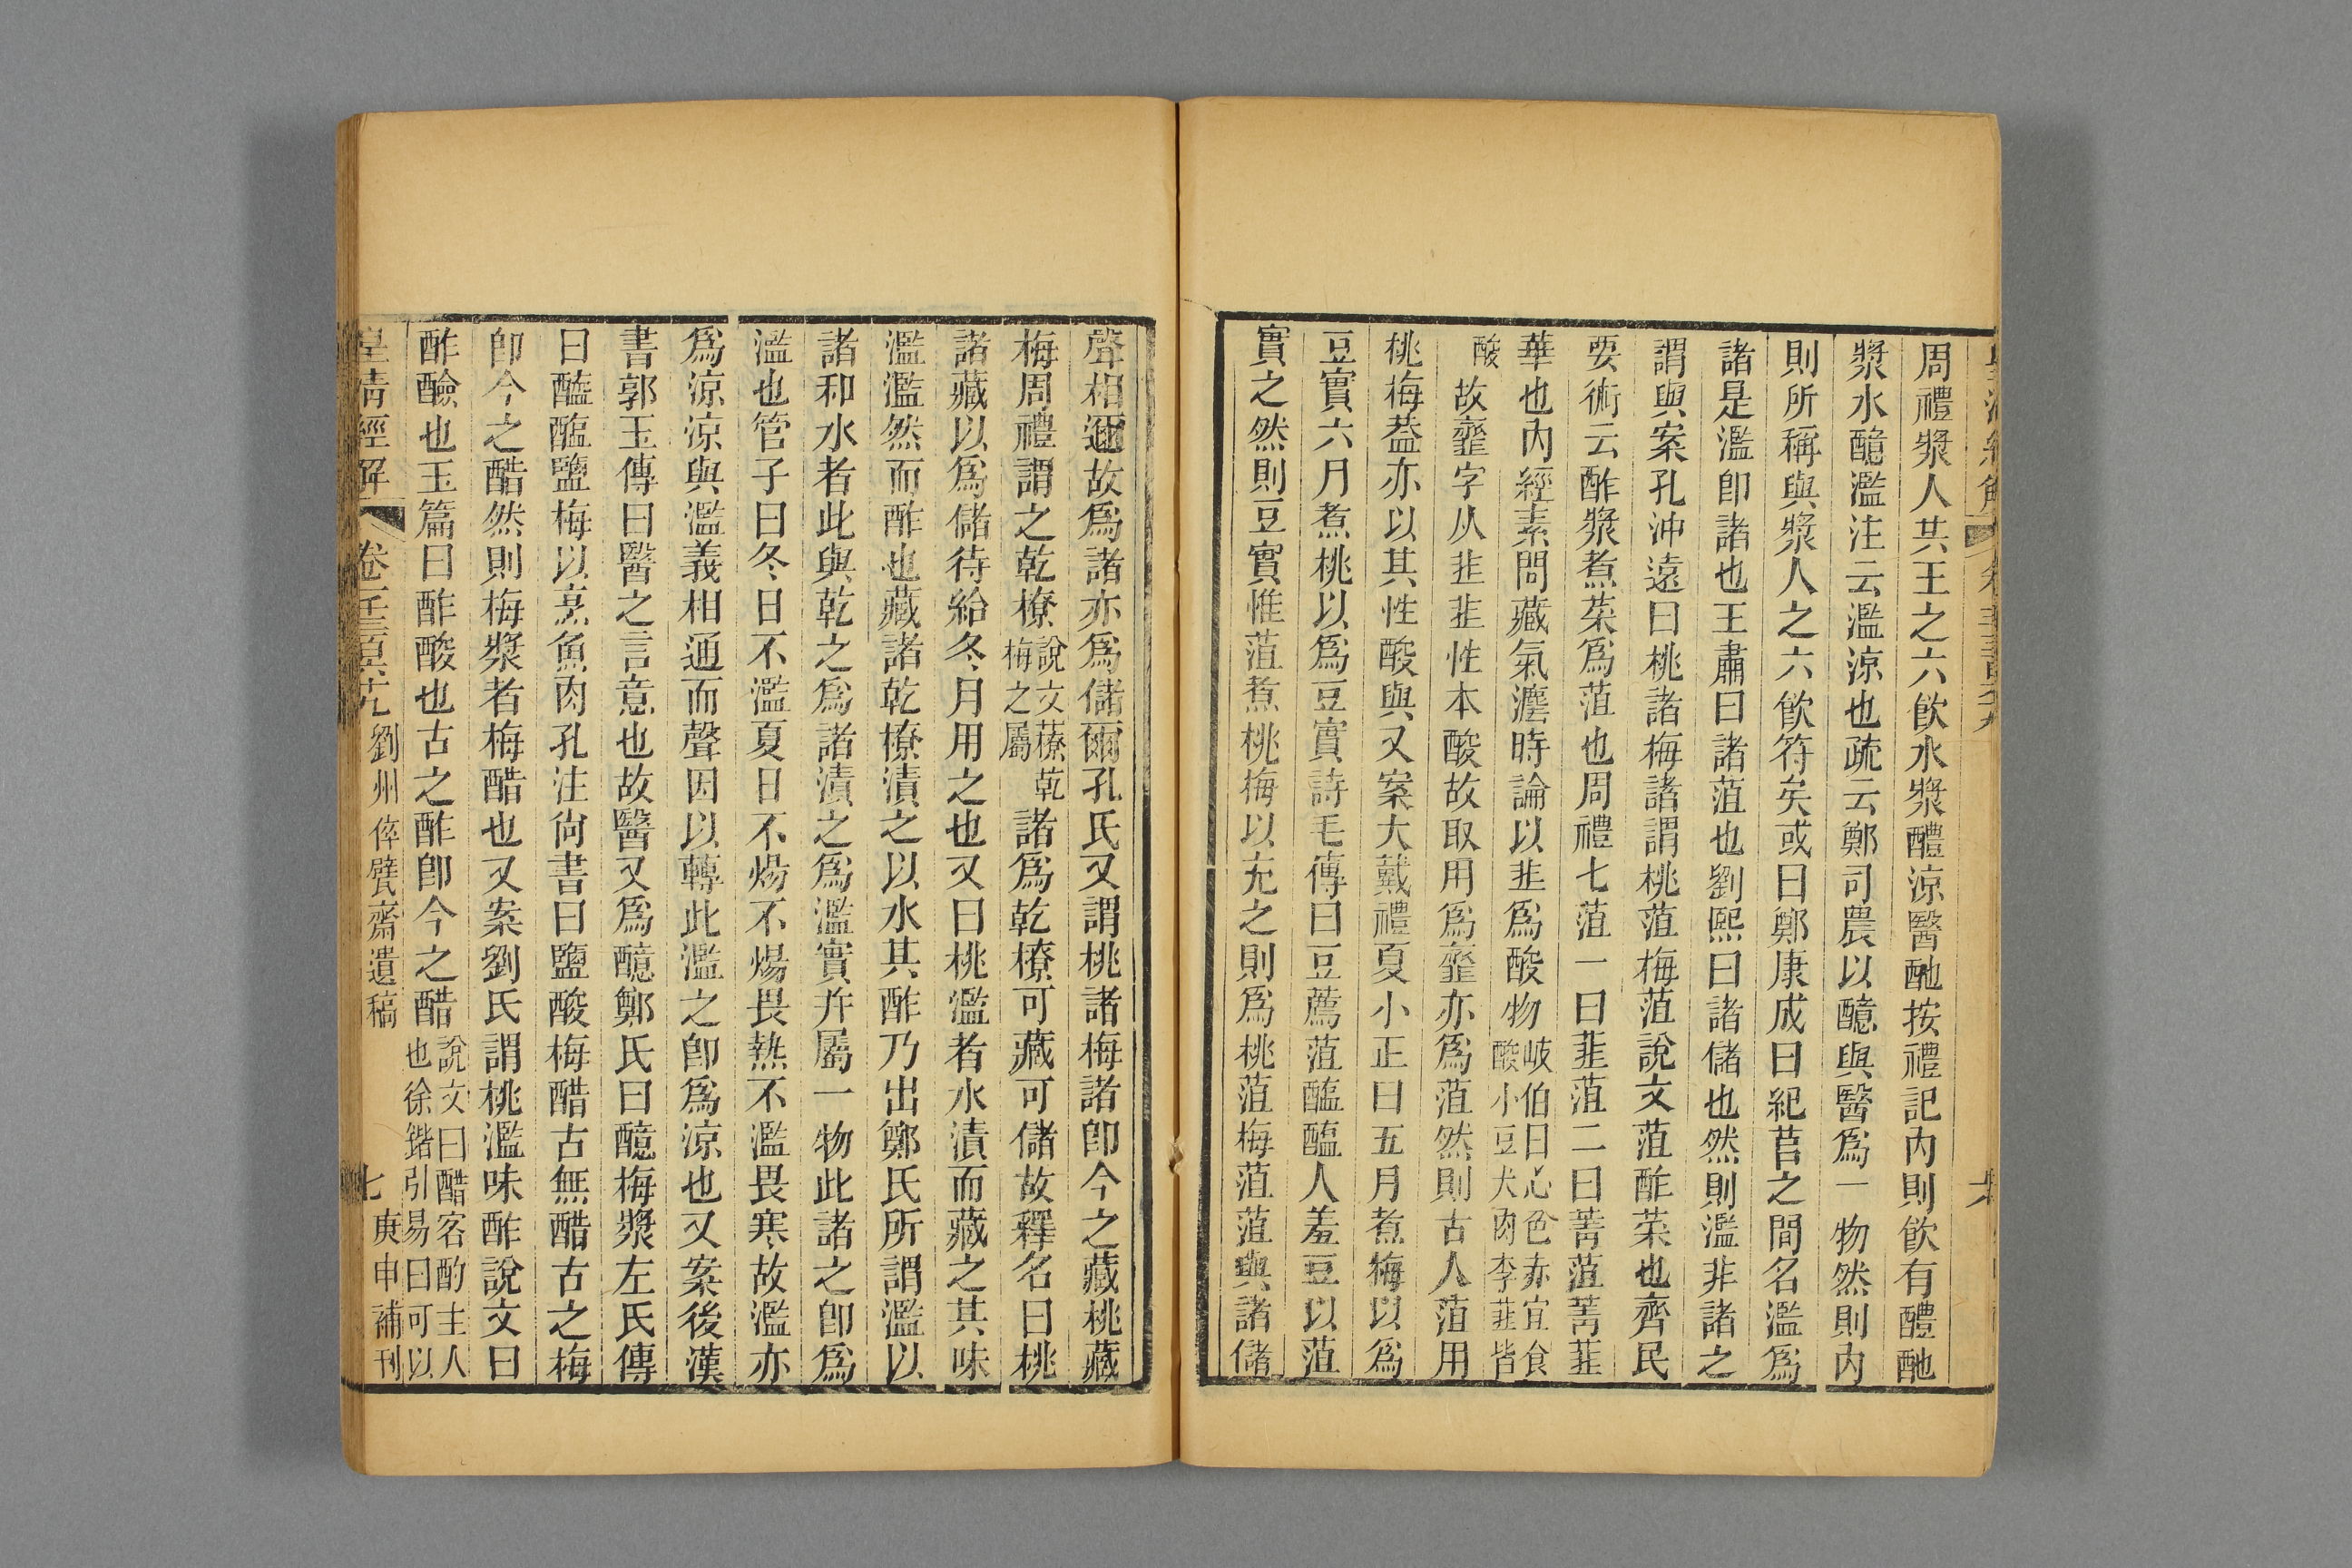 周禮漿人共王之六飲水漿醴涼醫酏按禮記內則飲有醴酏
漿水醷濫注云濫涼也疏云鄭司農以醷與醫爲一物然則內
則所稱與漿人之六飲符矣或曰鄭康成曰紀莒之間名濫爲
諸是濫卽諸也王肅曰諸菹也劉熙曰諸儲也然則濫非諸之
謂與案孔沖遠曰桃諸梅諸謂桃菹梅菹說文菹酢菜也齊民
要術云酢漿煮菜爲菹也周禮七菹一曰韭菹二曰菁菹菁韭
華也內經素問藏氣灋時論以韭爲酸物岐伯曰心色赤宜食酸小豆犬肉李韭皆
酸故虀字从韭韭性本酸故取用爲虀亦爲菹然則古人菹用
桃梅葢亦以其性酸與又案大戴禮夏小正曰五月煮梅以爲
豆實六月煮桃以爲豆實詩毛傳曰豆薦菹醢醢人羞豆以菹
實之然則豆實惟菹煮桃梅以充之則爲桃菹梅菹菹與諸儲
聲相邇故爲諸亦爲儲爾孔氏又謂桃諸梅諸卽今之藏桃藏
梅周禮謂之乾橑說文䕩乾梅之屬諸爲乾橑可藏可儲故釋名曰桃
諸藏以爲儲待給冬月用之也又曰桃濫者水漬而藏之其味
濫濫然而酢也藏諸乾橑漬之以水其酢乃出鄭氏所謂濫以
諸和水者此與乾之爲諸漬之爲濫實幷屬一物此諸之卽爲
濫也管子曰冬日不濫夏日不煬不煬畏熱不濫畏寒故濫亦
爲涼涼與濫義相通而聲因以轉此濫之卽爲涼也又案後漢
書郭玉傳曰醫之言意也故醫又爲醷鄭氏曰醷梅漿左氏傳
曰醯醢鹽梅以烹魚肉孔注尙書曰鹽酸梅醋古無醋古之梅
卽今之醋然則梅漿者梅醋也又案劉氏謂桃濫味酢說文曰
酢醶也玉篇曰酢酸也古之酢卽今之醋說文曰醋客酌主人也徐鍇引易曰可以
皇清經解 卷 劉州倅甓齋遺稿 七 庚申補刊